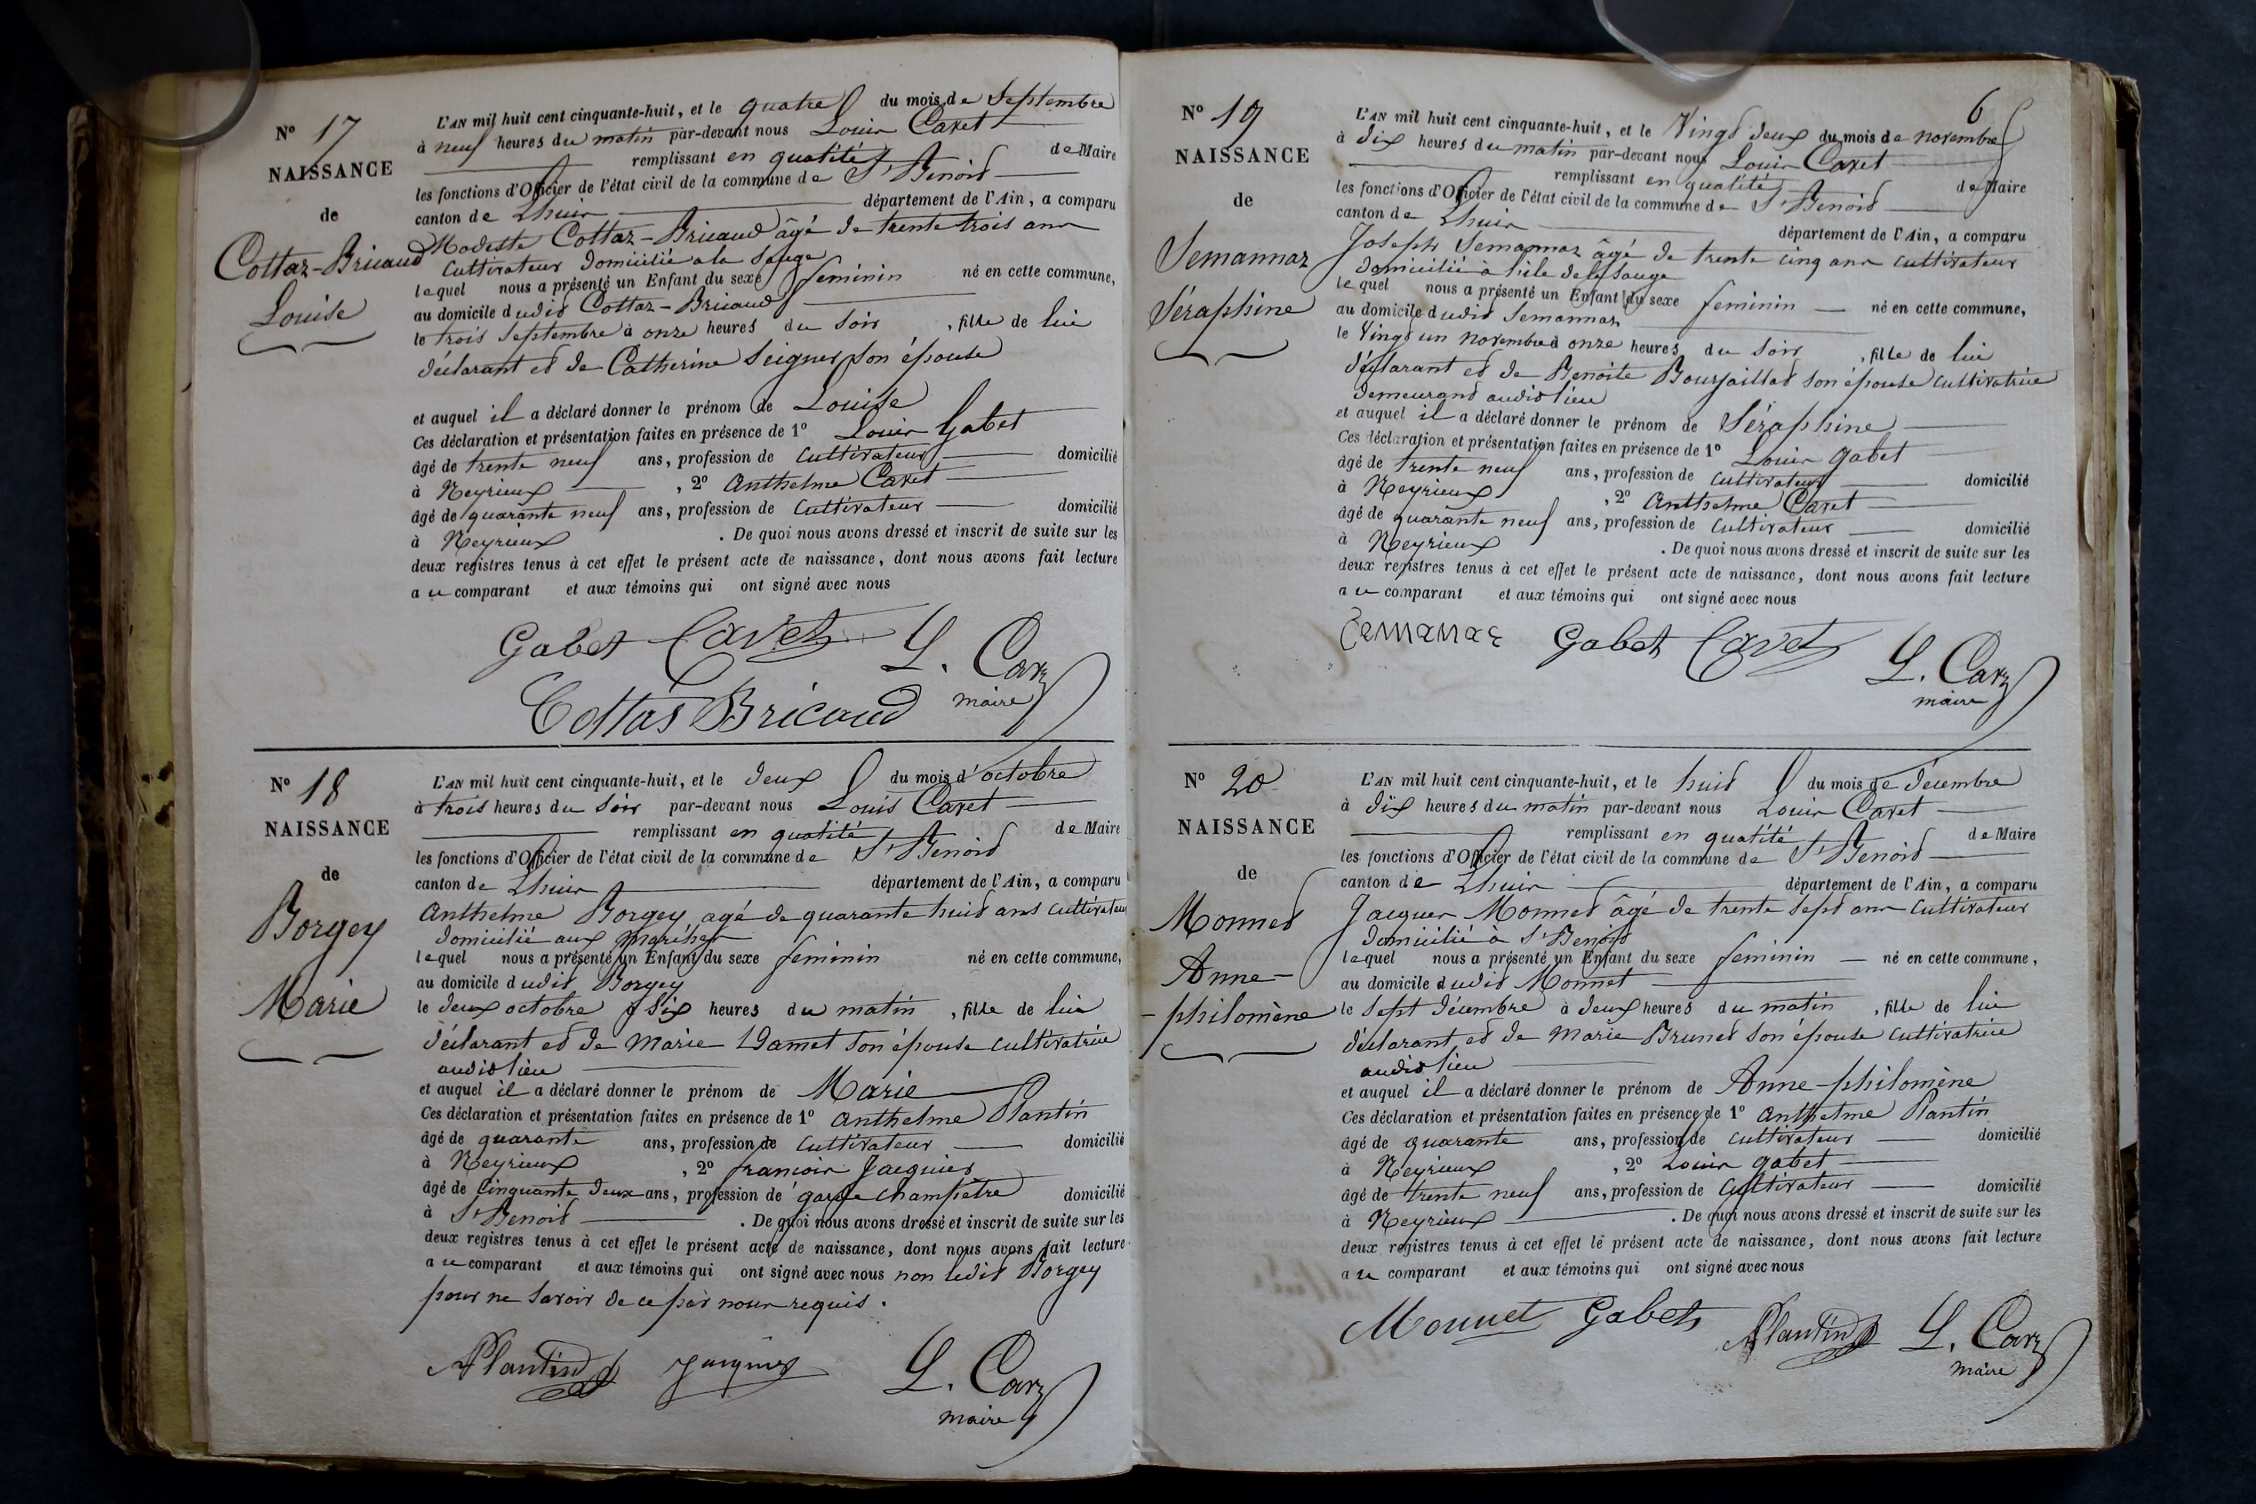 N° 17
NAISSANCE
de
Cottaz-Bricaud
Louise
L'AN mil huit cent cinquante-huit, et le quatre du mois de Septembre
à neuf heures du matin par-devant nous Louis Cavet
remplissant en qualité de Maire
les fonctions d'Officier de l'état civil de la commune de St Benoit
canton de Lhuis département de l'Ain, a comparu
Modeste Cottaz-Bricaud âgé de trente trois ans
cultivateur domicilié a la Sauge
lequel nous a présenté un Enfant du sexe feminin né en cette commune,
au domicile dudit Cottaz-Bricaud
le trois Septembre à onze heures du soir, fille de lui
déclarant et de Catherine Seigner son épouse
et auquel il a déclaré donner le prénom de Louise
Ces déclaration et présentation faites en présence de 1° Louis Gabet
âgé de trente neuf ans, profession de cultivateur domicilié
à Neyrieux, 2° Anthelme Cavet
âgé de quarante neuf ans, profession de cultivateur domicilié
à Neyrieux. De quoi nous avons dressé et inscrit de suite sur les
deux registres tenus à cet effet le présent acte de naissance, dont nous avons fait lecture
au comparant et aux témoins qui ont signé avec nous
Gabet Cavet L. Cavet
maire
Cottas Bricaud
N° 18
NAISSANCE
de
Borgey
Marie
L'AN mil huit cent cinquante-huit, et le deux du mois d'octobre
à trois heures du soir par-devant nous Louis Cavet
remplissant en qualité de Maire
les fonctions d'Officier de l'état civil de la commune de St Benoit
canton de Lhuis département de l'Ain, a comparu
Anthelme Borgey agé de quarante huit ans cultivateur
domicilié aux
lequel nous a présenté un Enfant du sexe feminin né en cette commune,
au domicile dudit Borgey
le deux octobre à six heures du matin, fille de lui
déclarant et de Marie Damet son épouse cultivatrice
audit lieu
et auquel il a déclaré donner le prénom de Marie
Ces déclaration et présentation faites en présence de 1° Anthelme Plantin
âgé de quarante ans, profession de cultivateur domicilié
à Neyrieux, 2° francois Jacquier
âgé de cinquante deux ans, profession de garde champêtre domicilié
à St Benoit. De quoi nous avons dressé et inscrit de suite sur les
deux registres tenus à cet effet le présent acte de naissance, dont nous avons fait lecture
au comparant et aux témoins qui ont signé avec nous non ledit Borgey
pour ne savoir de ce par nous requis.
Plantin Jacquier L. Cavet
maire
6
N° 19
NAISSANCE
de
Semannaz
Séraphine
L'AN mil huit cent cinquante-huit, et le Vingt deux du mois de novembre
à dix heures du matin par-devant nous Louis Cavet
remplissant en qualité de Maire
les fonctions d'Officier de l'état civil de la commune de St Benoit
canton de Lhuis département de l'Ain, a comparu
Joseph Semannaz âgé de trente cinq ans cultivateur
domicilié à l'ile de la Sauge
lequel nous a présenté un Enfant du sexe feminin né en cette commune,
au domicile dudit Semannaz
le Vingt un novembre à onze heures du soir, fille de lui
déclarant et de Benoite Bourjaillat son épouse cultivatrice
demeurant audit lieu
et auquel il a déclaré donner le prénom de Séraphine
Ces déclaration et présentation faites en présence de 1° Louis Gabet
âgé de trente neuf ans, profession de cultivateur domicilié
à Neyrieux, 2° Anthelme Cavet
âgé de quarante neuf ans, profession de cultivateur domicilié
à Neyrieux. De quoi nous avons dressé et inscrit de suite sur les
deux registres tenus à cet effet le présent acte de naissance, dont nous avons fait lecture
au comparant et aux témoins qui ont signé avec nous
Gabet Cavet L. Cavet
maire
N° 20
NAISSANCE
de
Monnet
Anne-
-philomène
L'AN mil huit cent cinquante-huit, et le huit du mois de décembre
à dix heures du matin par-devant nous Louis Cavet
remplissant en qualité de Maire
les fonctions d'Officier de l'état civil de la commune de St Benoit
canton de Lhuis département de l'Ain, a comparu
Jacques Monnet âgé de trente sept ans cultivateur
domicilié à St Benoit
lequel nous a présenté un Enfant du sexe feminin né en cette commune,
au domicile dudit Monnet
le sept décembre à deux heures du matin, fille de lui
déclarant et de Marie Brunet son épouse cultivatrice
audit lieu
et auquel il a déclaré donner le prénom de Anne-philomène
Ces déclaration et présentation faites en présence de 1° Anthelme Plantin
âgé de quarante ans, profession de cultivateur domicilié
à Neyrieux, 2° Louis Gabet
âgé de trente neuf ans, profession de cultivateur domicilié
à Neyrieux. De quoi nous avons dressé et inscrit de suite sur les
deux registres tenus à cet effet le présent acte de naissance, dont nous avons fait lecture
au comparant et aux témoins qui ont signé avec nous
Monnet Gabet Plantin L. Cavet
maire